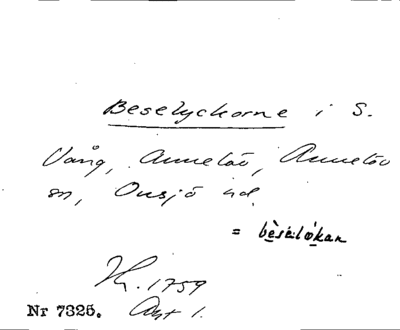 Beselyckorne i S.
Vång, Annelöv, Annelöv
sn, Onsjö hd.
= bèsəlókan
Nr 7325. Akt 1.